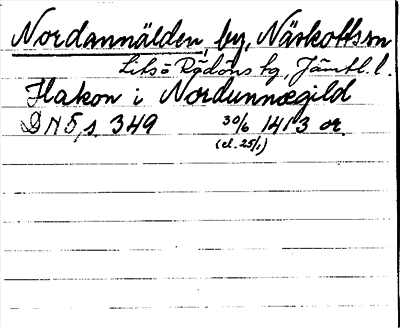 Nordannälden, by, Näskottssn
Litsō Rödöns tg, Jämtl. l.
Hakon i Nordunnægild
DN 5, s. 349 30/6 1413 or.
(el. 25/1)